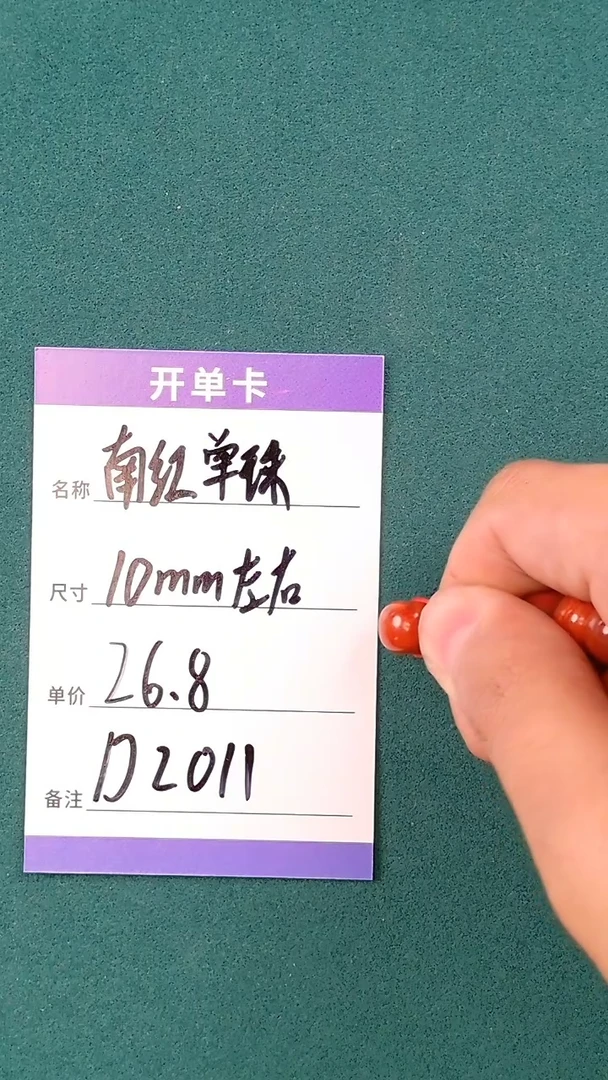 开单卡
名称 南红单珠
尺寸 10mm左右
单价 26.8
备注 D2011